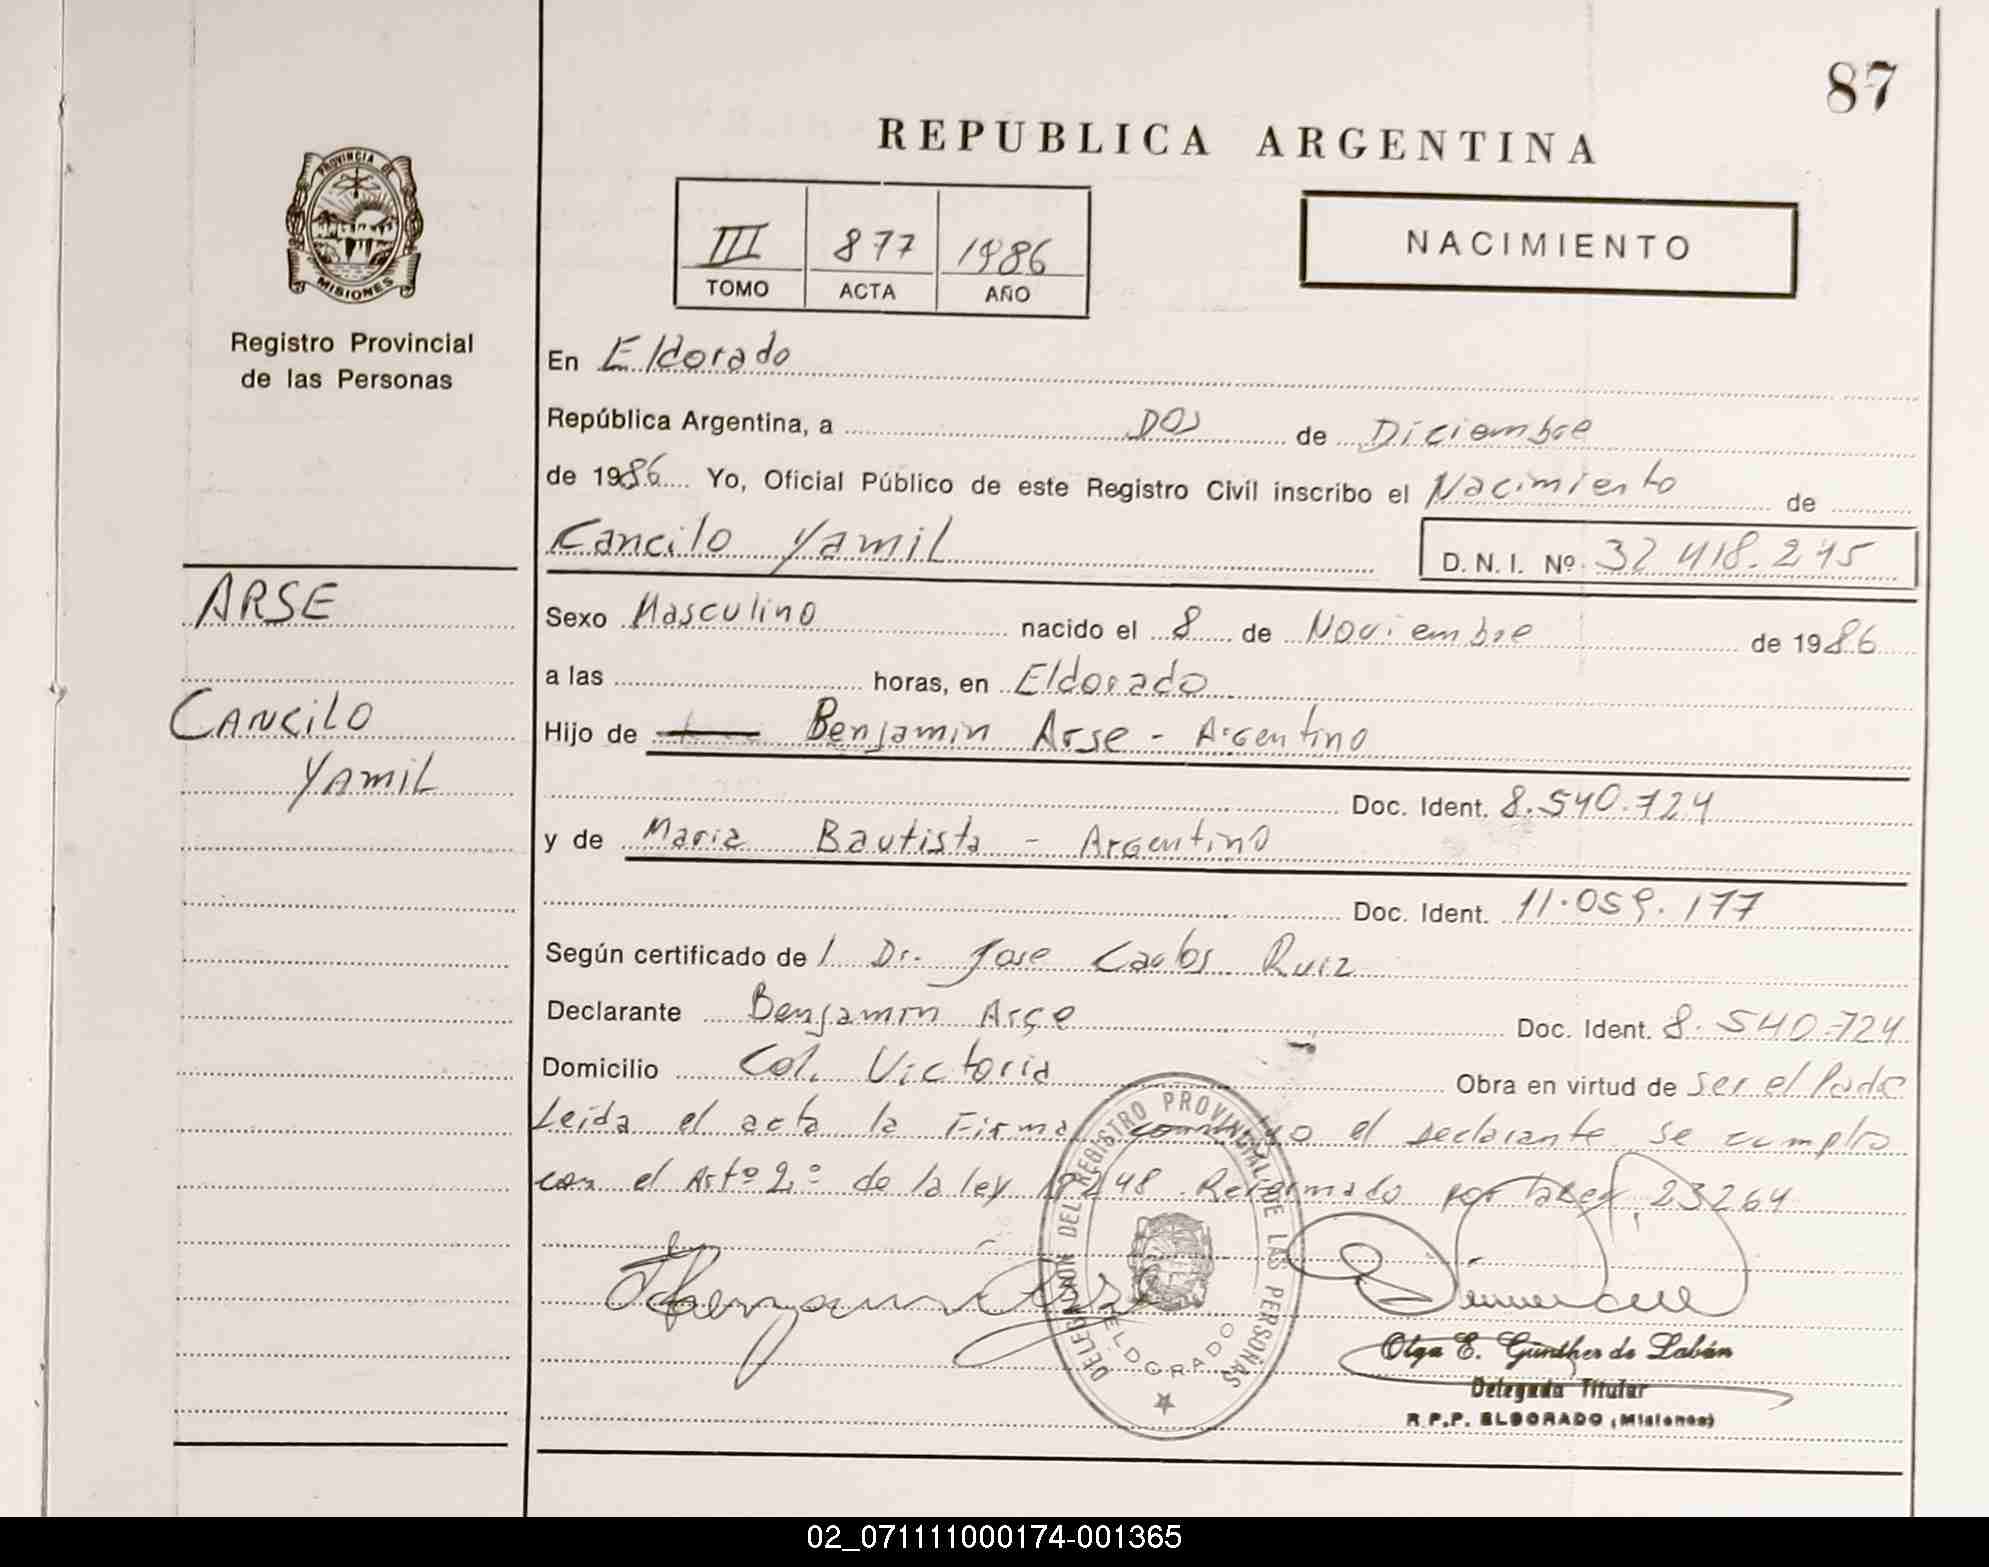 87
REPUBLICA ARGENTINA
PROVINCIA DE
MISIONES
III 877 1986
TOMO ACTA AÑO
NACIMIENTO
Registro Provincial
de las Personas
En Eldorado
República Argentina, a Dos de Diciembre
de 1986 Yo, Oficial Público de este Registro Civil inscribo el Nacimiento de
Cancilo Yamil
D. N. I. Nº 32 418.245
ARSE
CANCILO
YAMIL
Sexo Masculino nacido el 8 de Noviembre de 1986
a las horas, en Eldorado
Hijo de Benjamin Arse - Argentino
Doc. Ident. 8.540.724
y de Maria Bautista - Argentino
Doc. Ident. 11.059.177
Según certificado de l Dr. Jose Carlos Ruiz
Declarante Benjamin Arse Doc. Ident. 8.540.724
Domicilio Col. Victoria Obra en virtud de ser el Padre
Leida el acta la Firma conmigo el declarante se cumplio
con el Artº 2º de la ley 18248 Reformado por la ley 23264
DELEGACION DEL REGISTRO PROVINCIAL DE LAS PERSONAS
ELDORADO
Olga E. Günther de Labán
Delegada Titular
R.P.P. ELDORADO (Misiones)
02_071111000174-001365